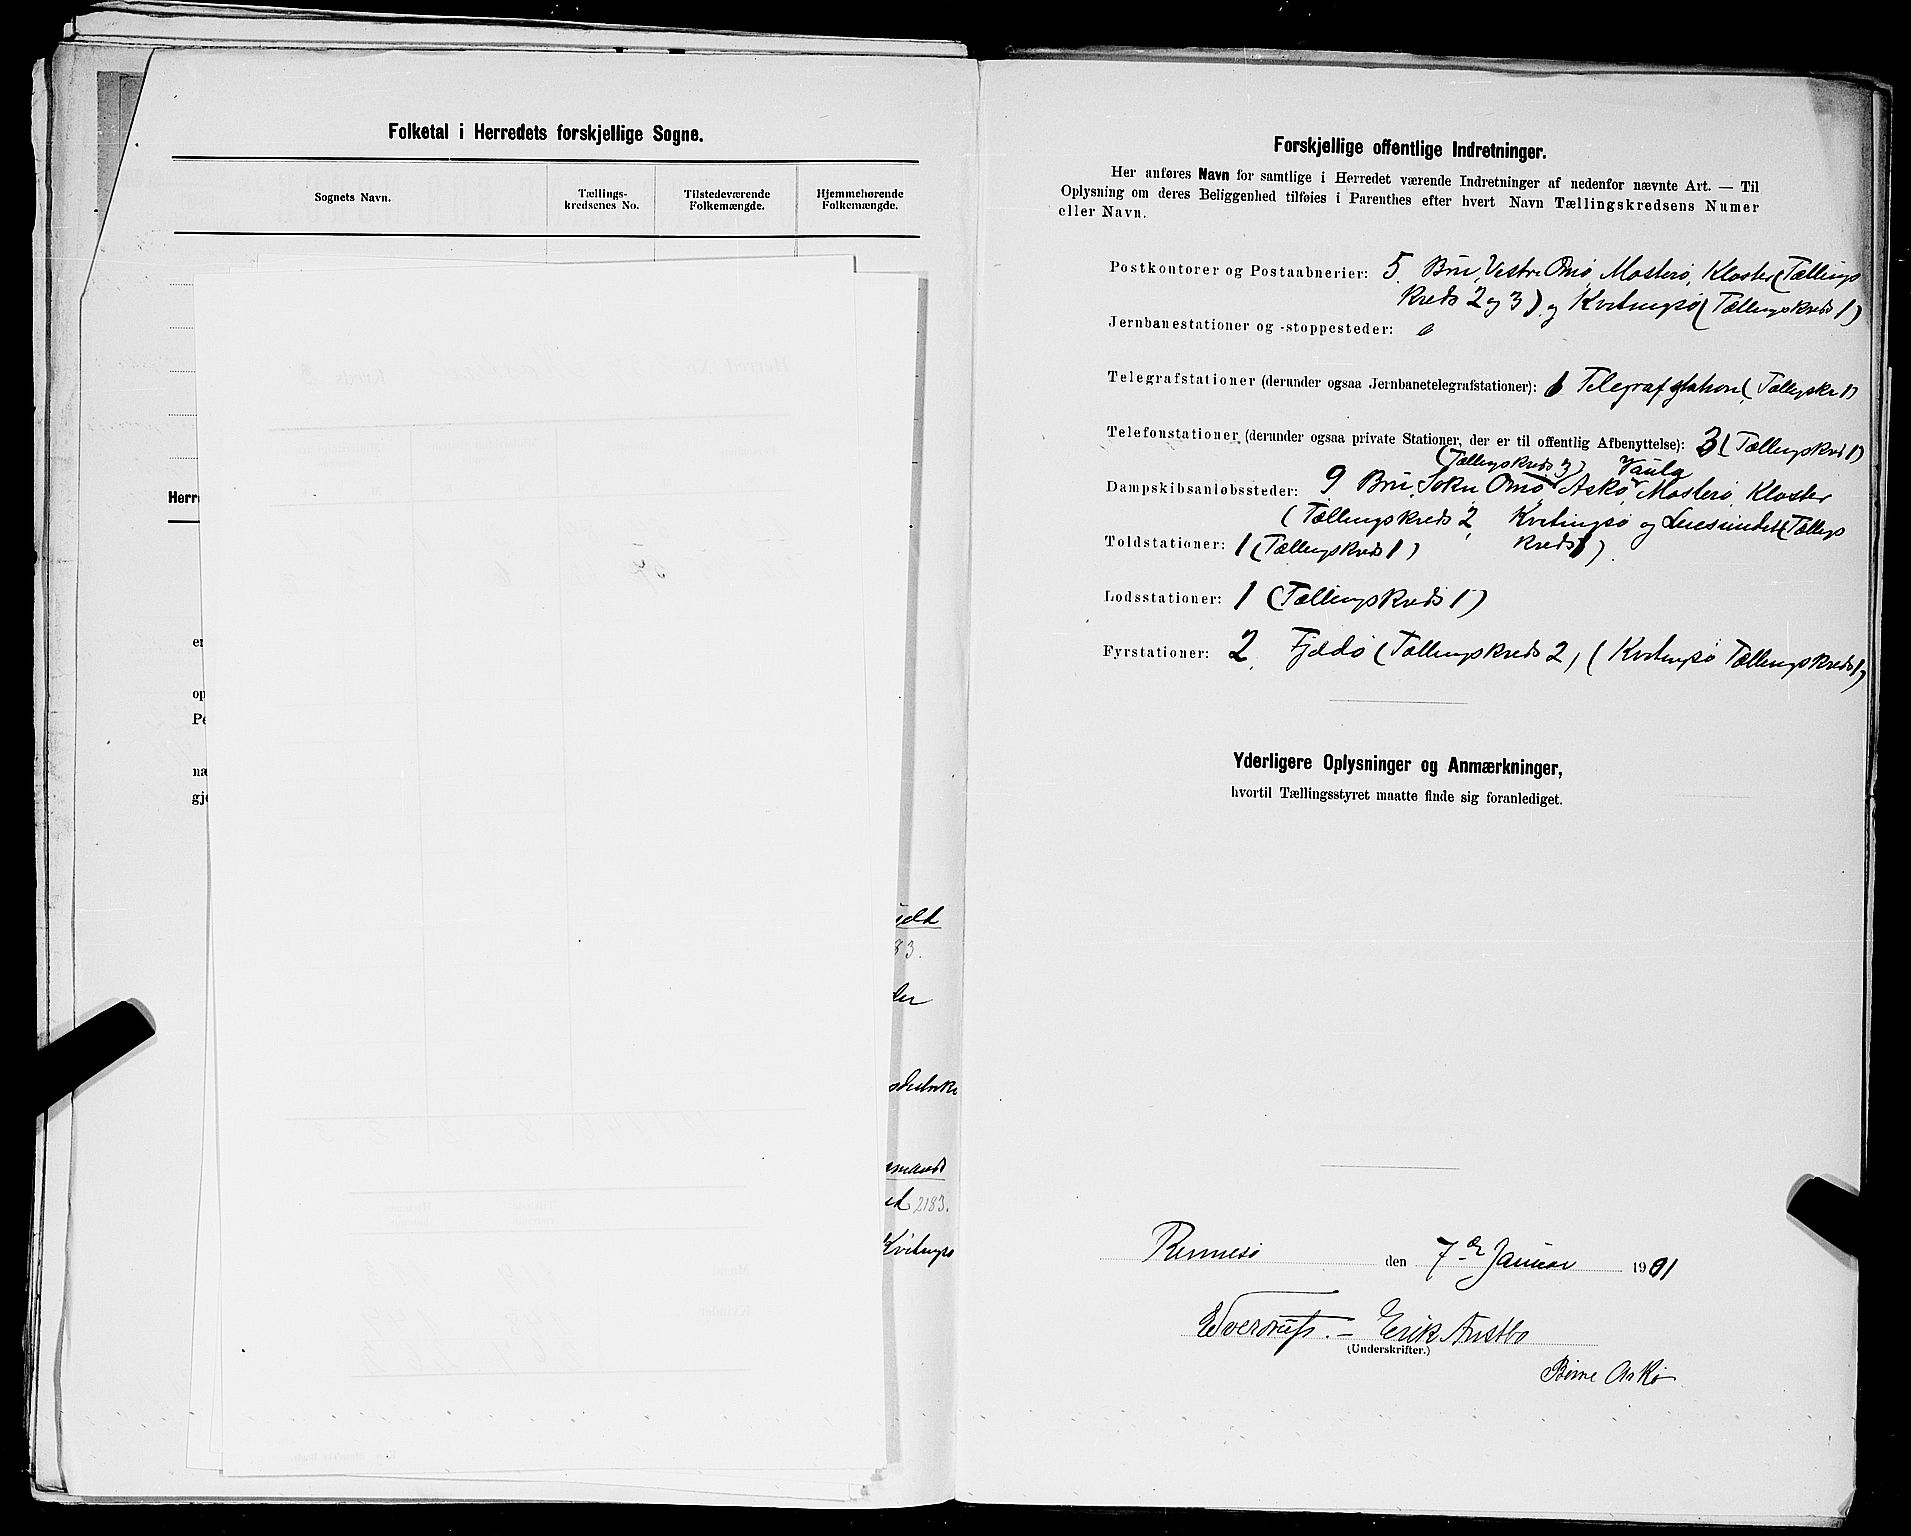 Folketal i Herredets forskjellige Sogne.
Sognets Navn.
Tællings-
kredsenes No.
Tilstedeværende
Folkemængde.
Hjemmehørende
Folkemængde.
Herr
er
op
Pe
næ
gje
83.
der
2183.
Kvitingsø
Forskjellige offentlige Indretninger.
Her anføres Navn for samtlige i Herredet værende Indretninger af nedenfor nævnte Art. — Til
Oplysning om deres Beliggenhed tilføies i Parenthes efter hvert Navn Tællingskredsens Numer
eller Navn.
Postkontorer og Postaabnerier: 5 Bru, Vestre Omø, Mosterø, Kloster (Tællings
kreds 2 og 3) og Kvitingsø (Tællingskreds 1)
Jernbanestationer og -stoppesteder:
Telegrafstationer (derunder ogsaa Jernbanetelegrafstationer): 1 Telegrafstation (Tællgskr 1)
Telefonstationer (derunder ogsaa private Stationer, der er til offentlig Afbenyttelse): 3 (Tællingskrd 1)
(Tællingskreds 3) Vaula
Dampskibsanløbssteder: 9 Bru, Sokn, Omø, Askø, Mosterø Kloster
(Tællingskreds 2, Kvitingsø og (Tællings
kreds 1).
Toldstationer: 1 (Tællingskreds 1)
Lodsstationer: 1 (Tællingskreds 1)
Fyrstationer: 2, Fjødø (Tællingskreds 2) (Kvitingsø Tællingskreds 1)
Yderligere Oplysninger og Anmærkninger,
hvortil Tællingsstyret maatte finde sig foranlediget.
Rennesø den 7de Januar 1901
Sverdrup. – Erik Austbø
(Underskrifter.)
Børne Askø